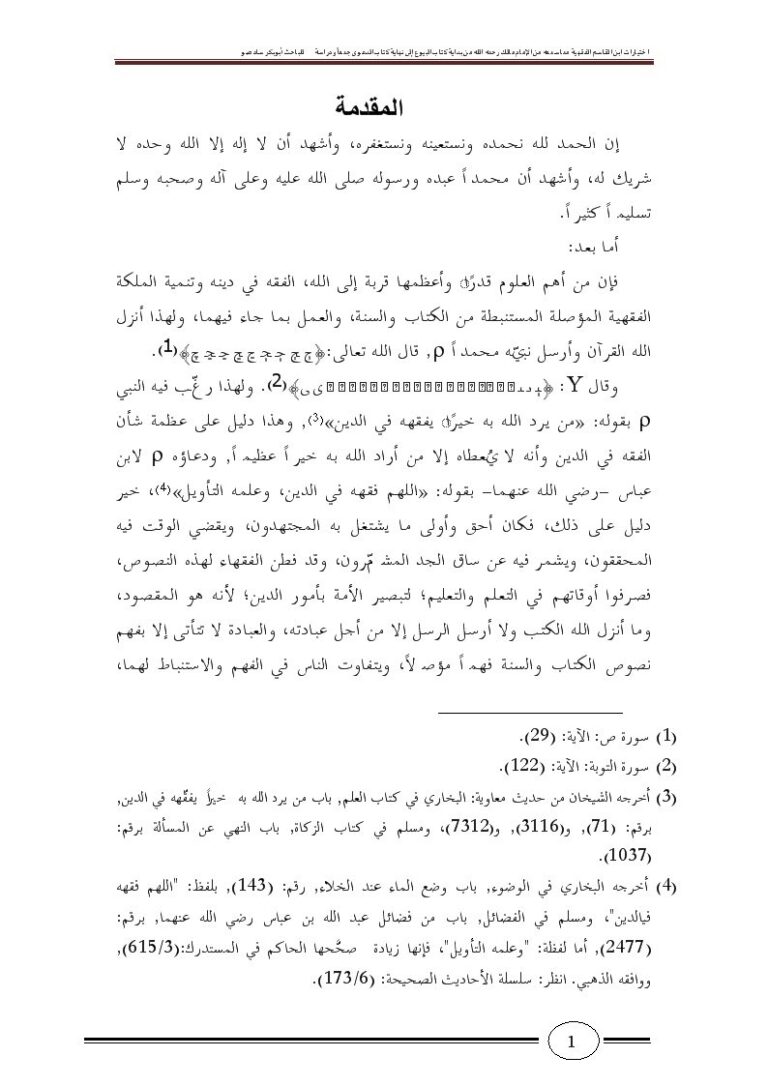 اختيارات ابن القاسم الفقهية مما سمعه من الإمام مالك رحمه الله من بداية كتاب البيوع إلى نهاية كتاب الدعوى جمعاً ودراسة للباحث أبوبكر سادمبو
المقدمة
إن الحمد لله نحمده ونستعينه ونستغفره، وأشهد أن لا إله إلا الله وحده لا
شريك له، وأشهد أن محمداً عبده ورسوله صلى الله عليه وعلى آله وصحبه وسلم
تسليماً كثيراً.
أما بعد:
فإن من أهم العلوم قدرًا وأعظمها قربة إلى الله، الفقه في دينه وتنمية الملكة
الفقهية المؤصلة المستنبطة من الكتاب والسنة، والعمل بما جاء فيهما، ولهذا أنزل
الله القرآن وأرسل نبيّه محمداً ρ, قال الله تعالى:﴿ﭺ ﭻ ﭼ ﭽ ﭾ ﭿ ﮀ﴾(1).
وقال Y: ﴿ ﯽ﴾(2). ولهذا رغّب فيه النبي
ρ بقوله: «من يرد الله به خيرًا يفقهه في الدين»(3), وهذا دليل على عظمة شأن
الفقه في الدين وأنه لا يُعطاه إلا من أراد الله به خيراً عظيماً, ودعاؤه ρ لابن
عباس –رضي الله عنهما– بقوله: «اللهم فقهه في الدين، وعلمه التأويل»(4)، خير
دليل على ذلك، فكان أحق وأولى ما يشتغل به المجتهدون، ويقضي الوقت فيه
المحققون، ويشمر فيه عن ساق الجد المشمّرون، وقد فطن الفقهاء لهذه النصوص،
فصرفوا أوقاتهم في التعلم والتعليم؛ لتبصير الأمة بأمور الدين؛ لأنه هو المقصود،
وما أنزل الله الكتب ولا أرسل الرسل إلا من أجل عبادته، والعبادة لا تتأتى إلا بفهم
نصوص الكتاب والسنة فهماً مؤصلاً، ويتفاوت الناس في الفهم والاستنباط لهما،
(1) سورة ص: الآية: (29).
(2) سورة التوبة: الآية: (122).
(3) أخرجه الشيخان من حديث معاوية: البخاري في كتاب العلم, باب من يرد الله به خيراً يفقّهه في الدين,
برقم: (71), و(3116), و(7312)، ومسلم في كتاب الزكاة, باب النهي عن المسألة برقم:
(1037).
(4) أخرجه البخاري في الوضوء, باب وضع الماء عند الخلاء, رقم: (143), بلفظ: "اللهم فقهه
فيالدين"، ومسلم في الفضائل, باب من فضائل عبد الله بن عباس رضي الله عنهما, برقم:
(2477), أما لفظة: "وعلمه التأويل"، فإنها زيادة صحَّحها الحاكم في المستدرك:(615/3),
ووافقه الذهبي. انظر: سلسلة الأحاديث الصحيحة: (173/6).
1